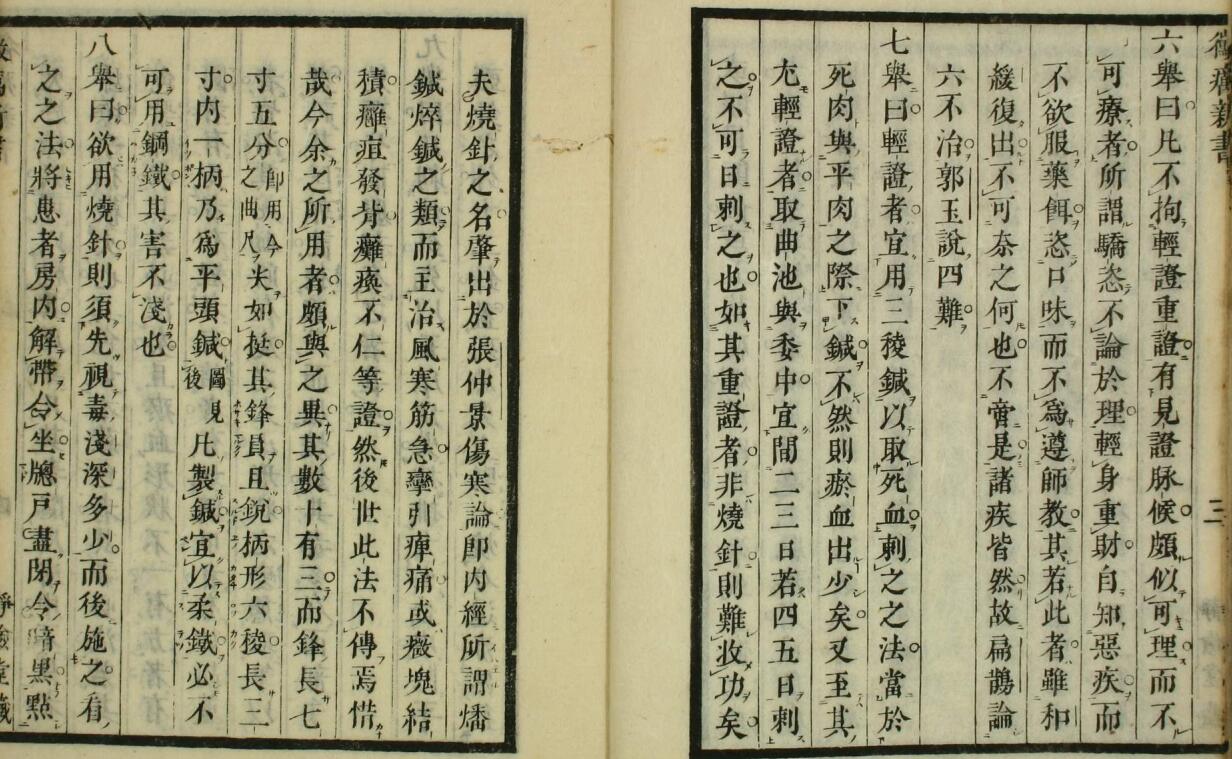 六舉曰凡不拘輕證重證有見證脉候頗似可理而不
可療者所謂驕恣不論於理輕身重財自知惡疾而
不欲服藥餌恣口味而不爲遵師教其若此者雖和
緩復出不可奈之何也不啻是諸疾皆然故扁鵲論
六不治郭玉說四難
七舉曰輕證者宜用三稜鍼以取死血刺之之法當於
死肉與平肉之際下鍼不然則瘀血出少矣又至其
尤輕證者取曲池與委中宜間二三日若四五日刺
之不可日刺之也如其重證者非燒針則難收功矣
三
夫燒針之名肇出於張仲景傷寒論卽内經所謂燔
鍼焠鍼之類而主治風寒筋急攣引痺痛或癥塊結
積癰疽發背癱瘓不仁等證然後世此法不傳焉惜
哉今余之所用者頗與之異其數十有三而鋒長七
寸五分卽用今之曲尺夫如挺其鋒員且銳柄形六稜長二
寸内一柄乃爲平頭鍼圖見後凡製鍼宜以柔鐵必不
可用鋼鐵其害不淺也
八舉曰欲用燒針則須先視毒淺深多少而後施之看
之之法將患者房内解帶令坐牕戸盡閉令暗黒點